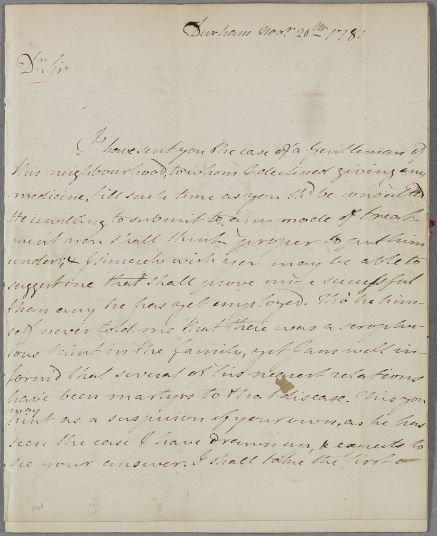 Durham Novr 20th 1781
Dr Sir
I have sent you the case of a Gentleman of
this neighbourhood, to whom I declined giving any
medicine, till such time as you shd be consulted.
He is willing to submit to any mode of treat-
ment you shall think proper to put him
under; & I sincerely wish you may be able to
suggest one that shall prove more successful
than any he has yet employed. Tho he him-
self never told me that there was a scrophu-
lous taint in the family, yet I am well in-
formd that several of his nearest relations
have been martyrs to that disease. This you
may
hint as a suspicion of your own, as he has
seen the case I have drawn up, & expects to
see your answer. I shall take the first